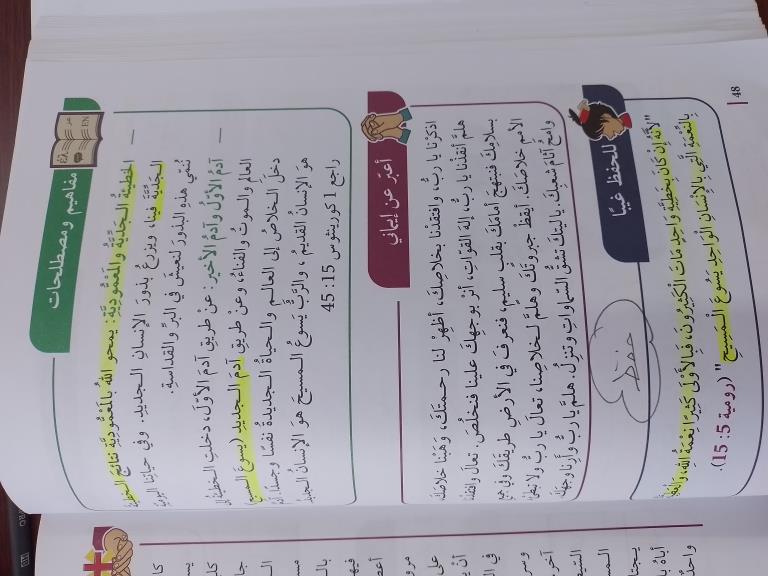 مفاهيم ومصطلحات
عر EN
— الخطيئة الجَدّيَّة والمَعْمُوديَّة: يمحو اللهُ بالمَعْمُوديَّة نتائجَ الخطيئة
الجَدّيَّة فينا، ويزرعُ بذورَ الإنسانِ الجديدِ. وفي حياتنا اليوميّة
نُنَمّي هذه البذورَ لنعيشَ في البرِّ والقداسةِ.
— آدمُ الأوّلُ وآدمُ الأخير: عن طريقِ آدمَ الأوّلِ، دخلتِ الخطيئةُ إلى
العالمِ والموتُ والفناءُ، وعن طريقِ آدمَ الجديدِ (يسوعَ المسيحِ)
دخلَ الخلاصُ إلى العالمِ والحياةُ الجديدةُ نفسًا وجسدًا.
هو الإنسانُ القديمُ، والرَّبُّ يسوعُ المسيحُ هو الإنسانُ الجديدُ.
راجع ١ كورينثوس 15: 45
أُعبّر عن إيماني
اذكرْنا يا ربُّ، وافتقدْنا بخلاصِكَ، أظهِرْ لنا رحمتَكَ، وهَبْنا خلاصَكَ
هلمَّ أنقذْنا يا ربُّ، إلهَ القوّاتِ، أنِرْ بوجهِكَ علينا فنخلُصَ. تعالَ وافتقدْنا
بسلامِكَ فنبتهجَ أمامَكَ بقلبٍ سليمٍ، فنعرفَ في الأرضِ طريقَكَ وفي جميعِ
الأممِ خلاصَكَ. أيقظْ جبروتَكَ وهلمَّ لخلاصِنا، تعالَ يا ربُّ ولا تبطئْ
وامحُ آثامَ شعبِكَ. يا ليتكَ تشقُّ السّماواتِ وتنزِلُ. هلمَّ يا ربُّ وأرِنا وجهَكَ
للحفظ غيبًا
"لأنَّهُ إن كانَ بخطيئةِ واحدٍ ماتَ الكثيرُونَ، فبالأَوْلى كثيرًا نعمةُ اللهِ، والعطيَّةُ
بالنّعمةِ الَّتي بالإنسانِ الواحدِ يَسُوعَ الـمَسيحِ" (رومية 5: 15).
حفظ
48